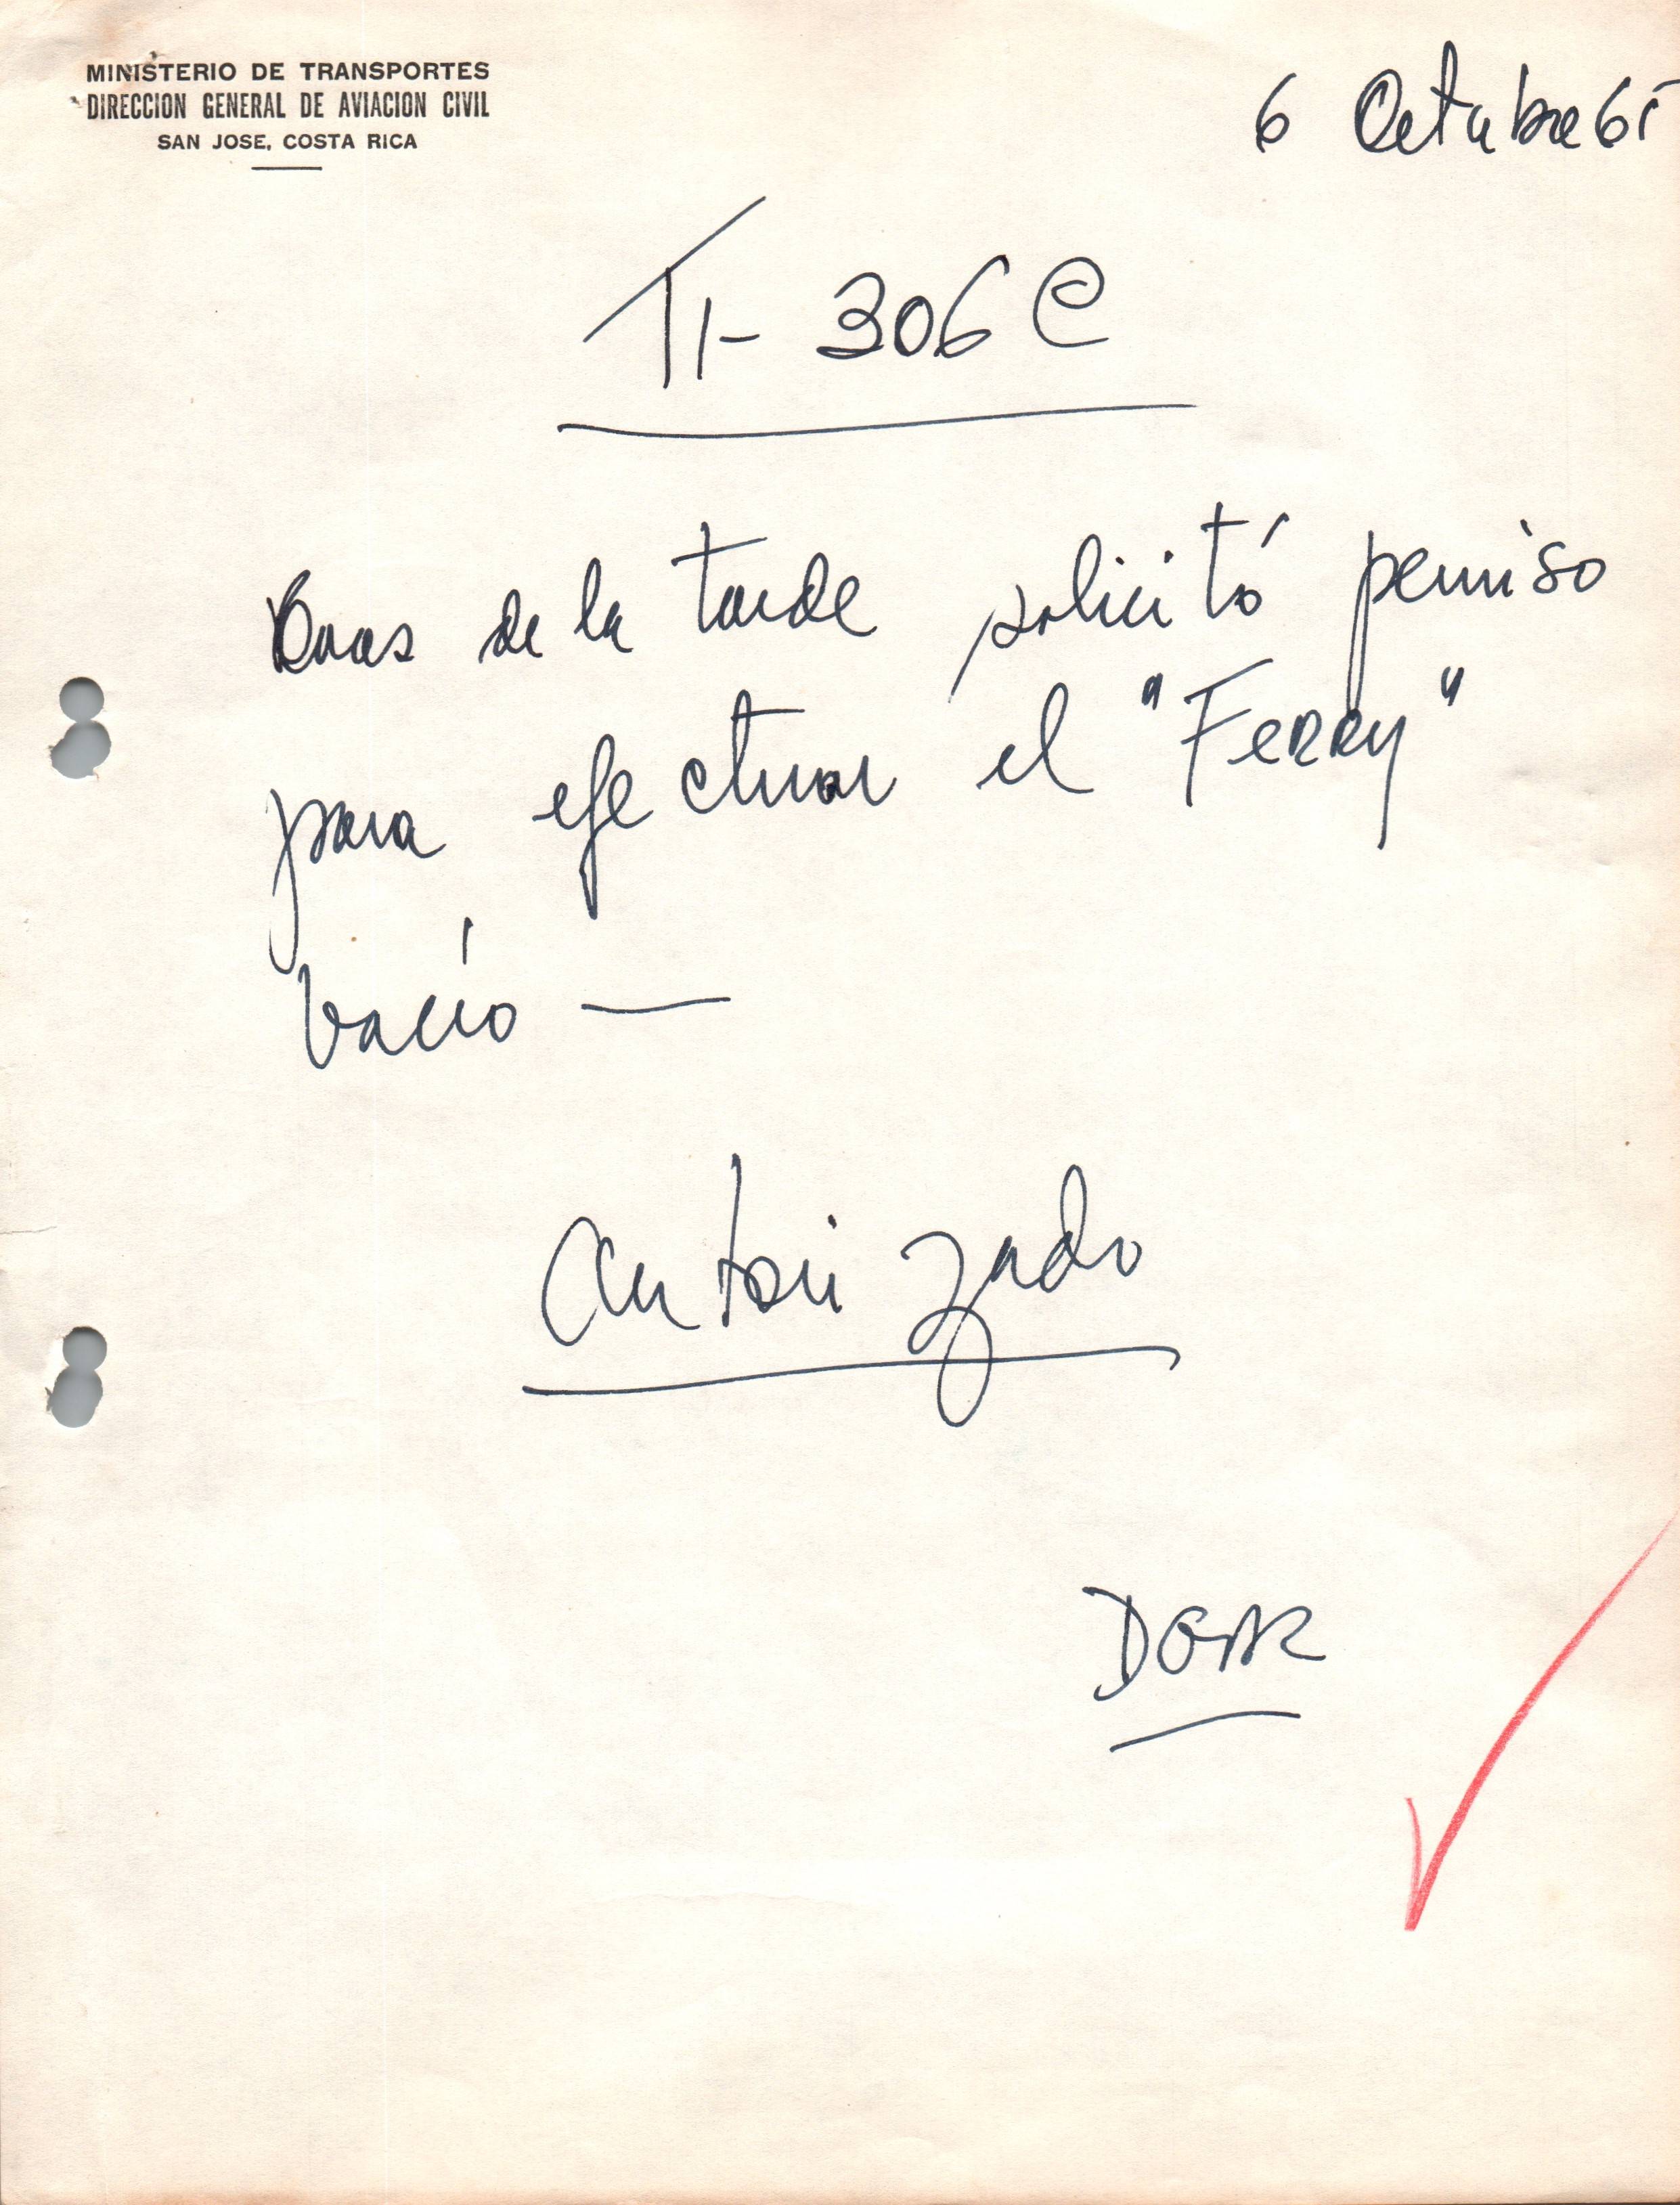 MINISTERIO DE TRANSPORTES
DIRECCION GENERAL DE AVIACION CIVIL
SAN JOSE, COSTA RICA
6 Octubre 65
TI- 306 C
de la tarde solicitó permiso
para efectuar el "Ferry"
vacío —
autorizado